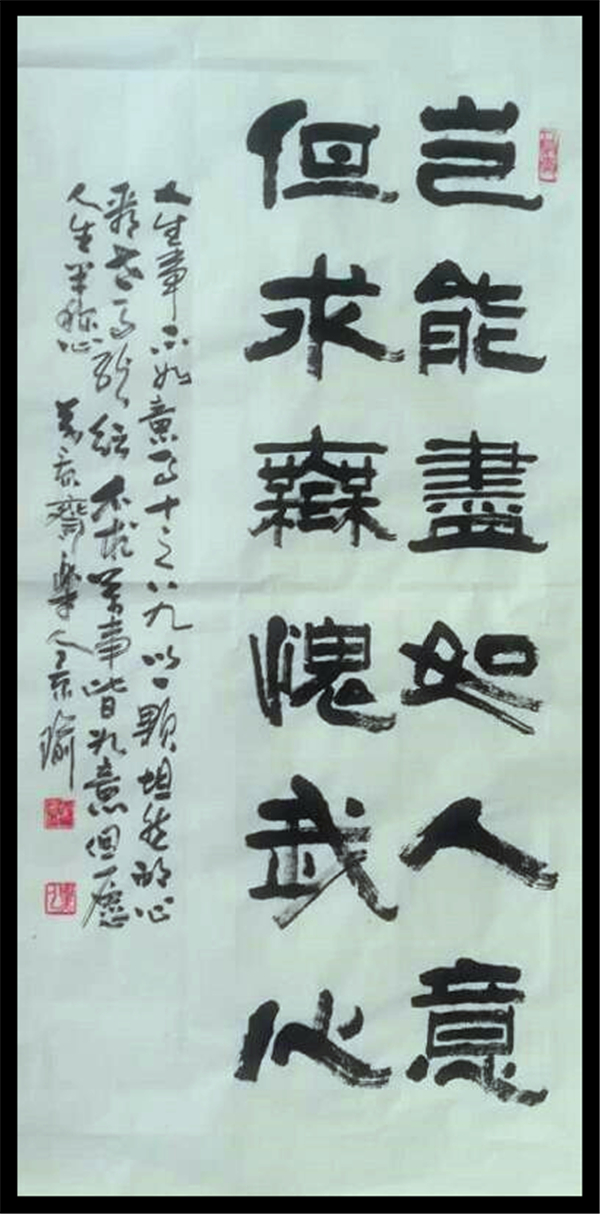 岂能盡如人意
但求無愧我心
人生事不如意事十之八九以一颗坦然的心
看世事纷纭不求萬事皆如意但愿
人生半称心 齋 人 瑜